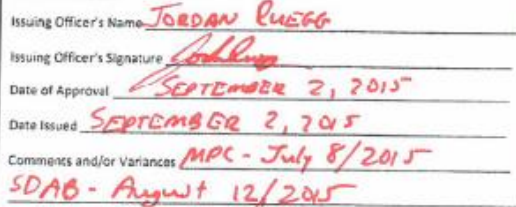 Issuing Officer's Name JORDAN RUEGG
Issuing Officer's Signature
Date of Approval SEPTEMBER 2, 2015
Date Issued SEPTEMBER 2, 2015
Comments and/or Variances MPC - July 8/2015
SDAB - August 12/2015